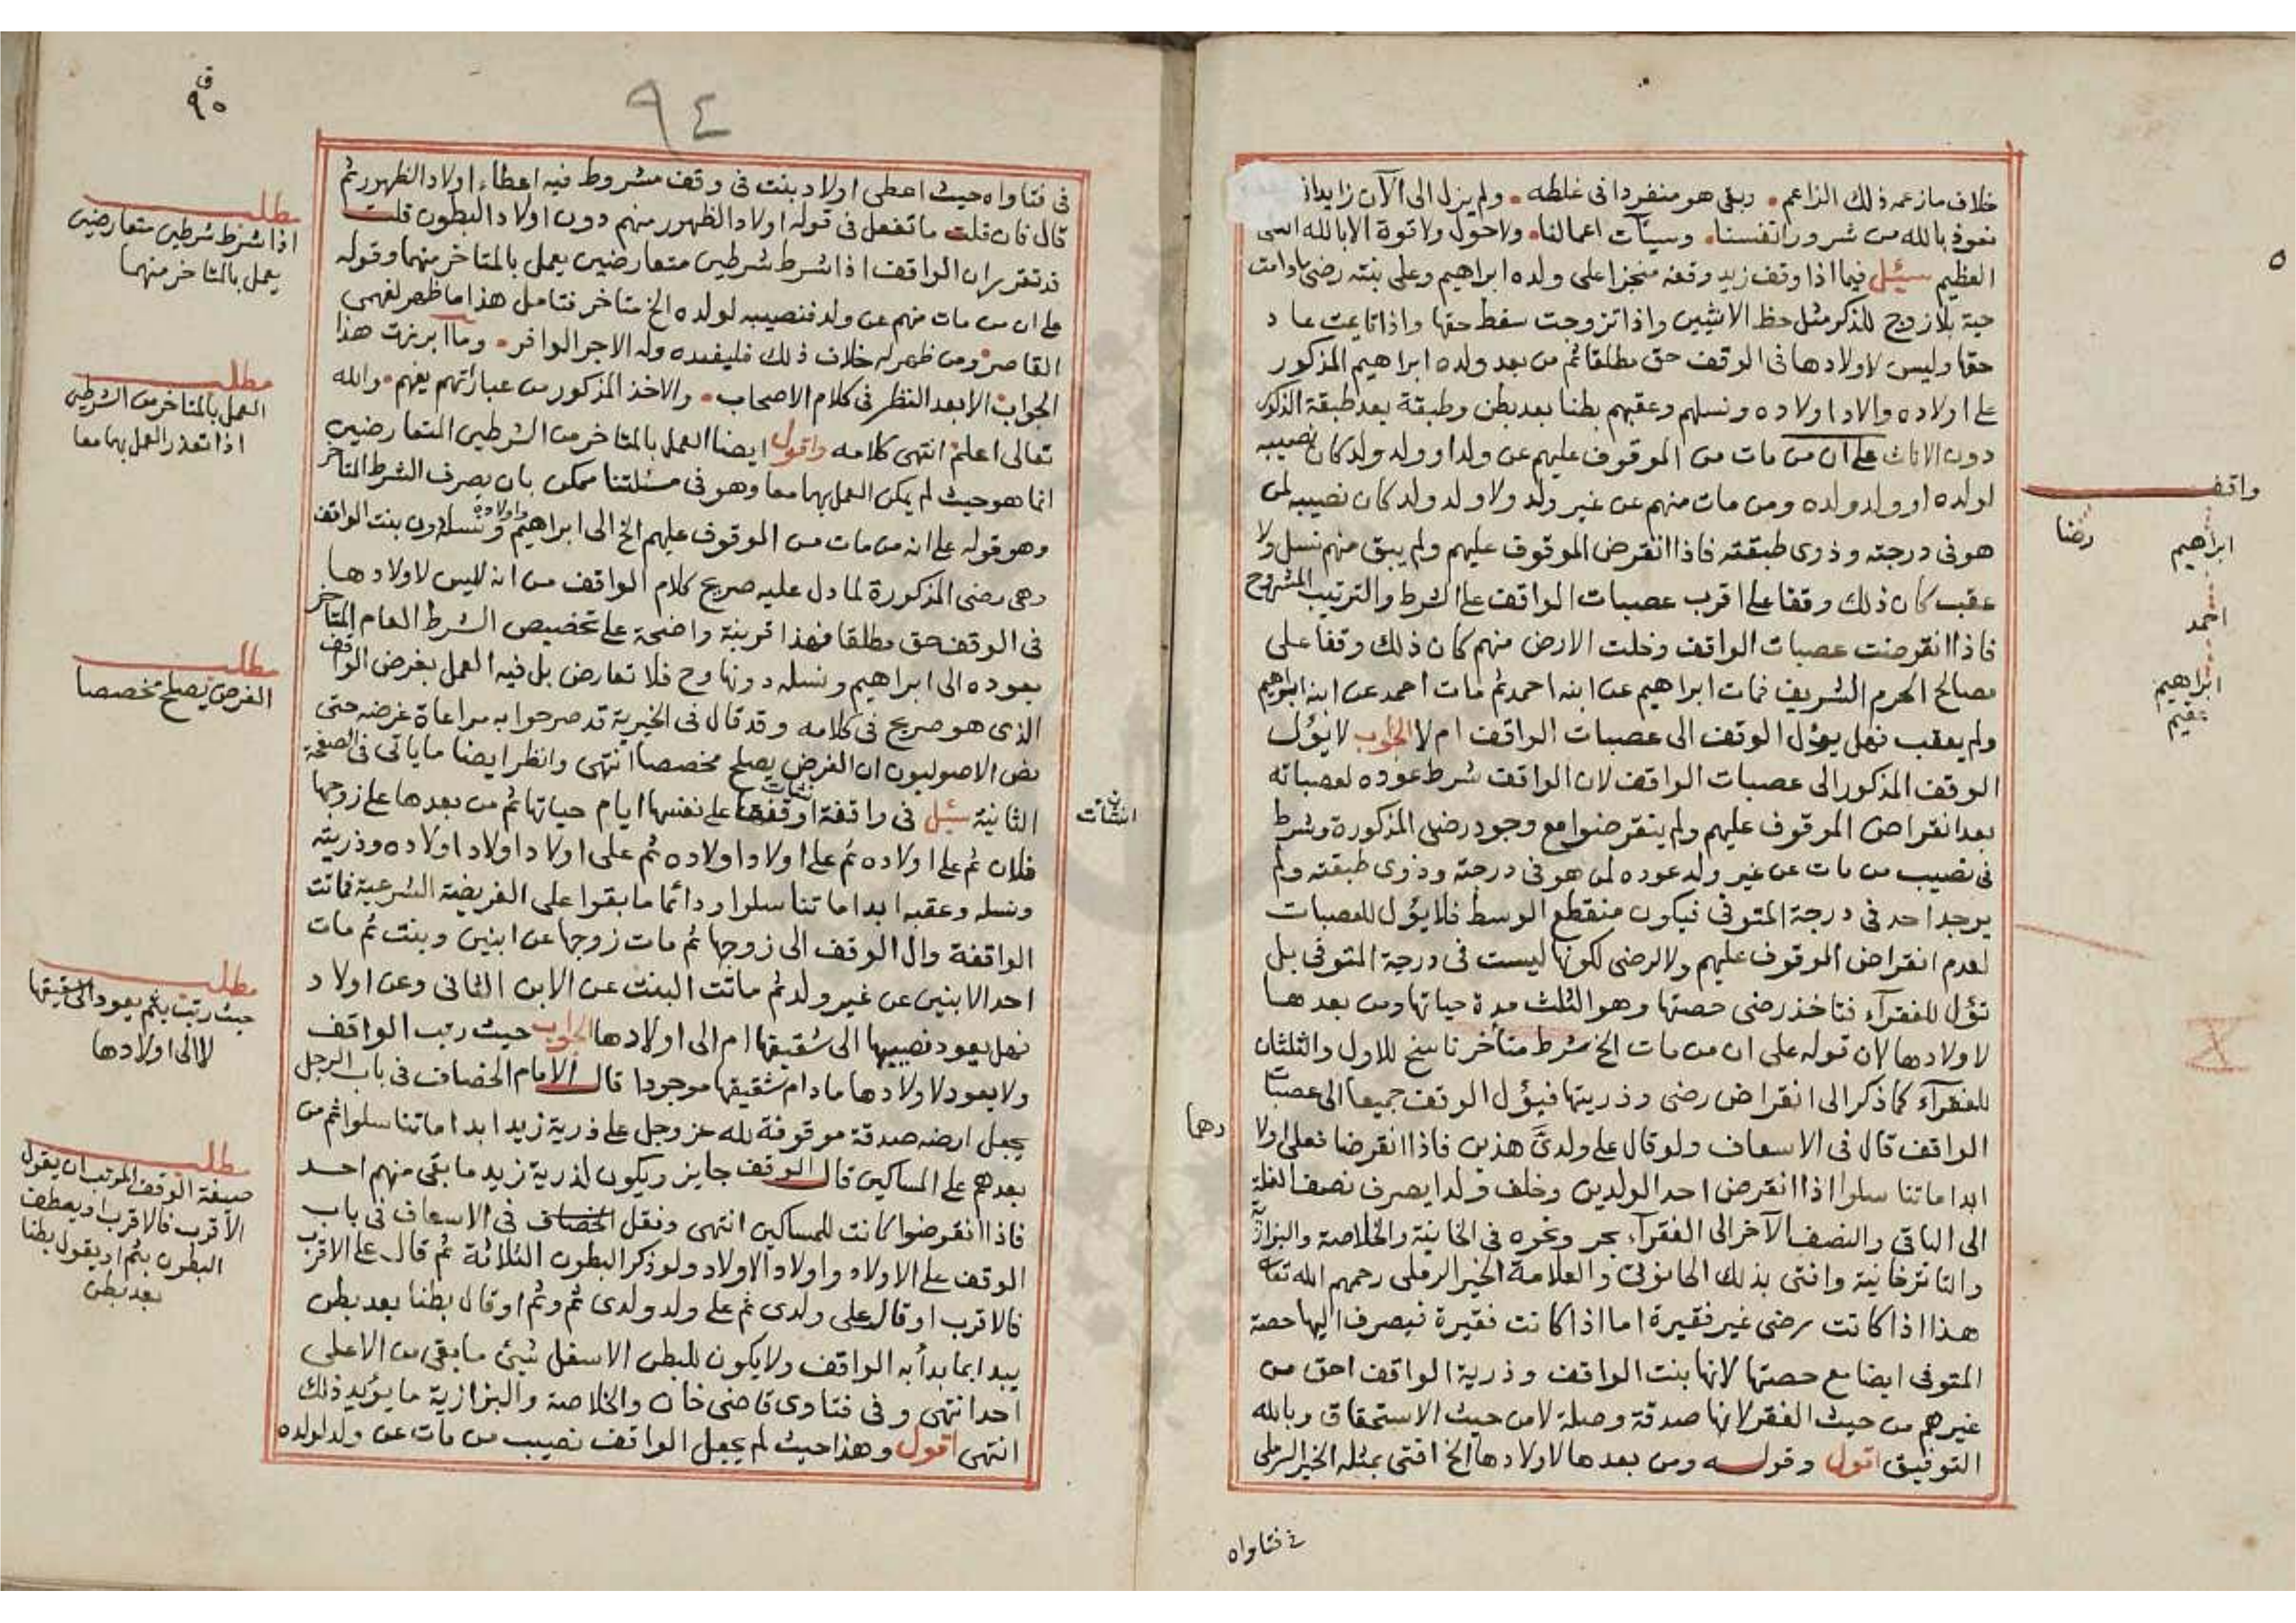 خلاف مازعمه ذلك الزاعم • وبقى هو منفردا فى غلطه • ولم يزل الى الآن زايدا
نعوذ بالله من شرور انفسنا • وسيآت اعمالنا • ولاحول ولاقوة الابالله العلى
العظيم سئل فيما اذا وقف زيد وقفه منجزا على ولده ابراهيم وعلى بنته رضى مادامت
حية بلازوج للذكر مثل حظ الانثيين واذا تزوجت سقط حقها واذا تايمت عاد
حقها وليس لاولادها فى الوقف حق مطلقا ثم من بعد ولده ابراهيم المذكور
على اولاده واولاد اولاده ونسلهم وعقبهم بطنا بعد بطن وطبقة بعد طبقة الذكور
دون الاناث على ان من مات من الموقوف عليهم عن ولد او ولد ولد كان نصيبه
لولده او ولد ولده ومن مات منهم عن غير ولد ولا ولد ولد كان نصيبه لمن
هو فى درجته وذوى طبقته فاذا انقرض الموقوف عليهم ولم يبق منهم نسل ولا
عقب كان ذلك وقفا على اقرب عصبات الواقف على الشرط والترتيب المشروح
فاذا انقرضت عصبات الواقف وخلت الارض منهم كان ذلك وقفا على
مصالح الحرم الشريف فمات ابراهيم عن ابنه احمد ثم مات احمد عن ابنه ابراهيم
ولم يعقب فهل يؤل الوقف الى عصبات الواقف ام لا الجواب لا يؤل
الوقف المذكور الى عصبات الواقف لان الواقف شرط عوده لعصباته
بعد انقراض الموقوف عليهم ولم ينقرضوا مع وجود رضى المذكورة وشرط
فى نصيب من مات عن غير ولد عوده لمن هو فى درجته وذوى طبقته ولم
يوجد احد فى درجة المتوفى فيكون منقطع الوسط فلا يؤل للعصبات
لعدم انقراض الموقوف عليهم ولا لرضى لكونها ليست فى درجة المتوفى بل
تؤل للفقرآء فتاخذ رضى حصتها وهو الثلث مدة حياتها ومن بعدها
لاولادها لان قوله على ان من مات الخ شرط متأخر ناسخ للاول والثلثان
للفقرآء كما ذكر الى انقراض رضى وذريتها فيؤل الوقف جميعا الى عصبات
الواقف قال فى الاسعاف ولو قال على ولدىّ هذين فاذا انقرضا فعلى اولا
دها
ابدا ماتنا سلوا اذا انقرض احد الولدين وخلف ولدا يصرف نصف الغلة
الى الباقى والنصف الآخر الى الفقرآء بحر ونحوه فى الخانية والخلاصة والبزازية
والتاترخانية وافتى بذلك الحانوتى والعلامة الخير الرملى رحمهم الله تعالى
هذا اذا كانت رضى غير فقيرة اما اذا كانت فقيرة فيصرف اليها حصة
المتوفى ايضا مع حصتها لانها بنت الواقف وذرية الواقف احق من
غيرهم من حيث الفقر لانها صدقة وصلة لا من حيث الاستحقاق وبالله
التوفيق اقول وقوله ومن بعدها لاولادها الخ افتى بمثله الخير الرملى
فى فتاواه
واقف
ابراهيم
رضا
احمد
ابراهيم
عقيم
٩٤
ق
٩٥
فى فتاواه حيث اعطى اولاد بنت فى وقف مشروط فيه اعطاء اولاد الظهور ثم
قال فان قلت ماتفعل فى قوله اولاد الظهور منهم دون اولاد البطون قلت
قد تقرر ان الواقف اذا شرط شرطين متعارضين يعمل بالمتاخر منهما وقوله
على ان من مات منهم عن ولد فنصيبه لولده الخ متاخر فتامل هذا ماظهر لفهمى
القاصر ومن ظهر له خلاف ذلك فليفده وله الاجر الوافر • وما ابرزت هذا
الجواب الا بعد النظر فى كلام الاصحاب • والاخذ المذكور من عباراتهم يفهم • والله
تعالى اعلم انتهى كلامه واقول ايضا العمل بالمتاخر من الشرطين المتعارضين
انما هو حيث لم يمكن العمل بهما معا وهو فى مسئلتنا ممكن بان يصرف الشرط المتاخر
وهو قوله على انه من مات من الموقوف عليهم الخ الى ابراهيم واولاده ونسله دون بنت الواقف
وهى رضى المذكورة لما دل عليه صريح كلام الواقف من انه ليس لاولادها
فى الوقف حق مطلقا فهذا قرينة واضحة على تخصيص الشرط العام المتاخر
بعوده الى ابراهيم ونسله دونها وح فلا تعارض بل فيه العمل بغرض الواقف
الذى هو صريح فى كلامه وقد قال فى الخيرية قد صرحوا به مراعاة غرضه حتى
نص الاصوليون ان الغرض يصلح مخصصا انتهى وانظر ايضا ماياتى فى الصفحة
الثانية سئل فى واقفة اوقفت على نفسها ايام حياتها ثم من بعدها على زوجها
انشأت
فلان ثم على اولاده ثم على اولاد اولاده ثم على اولاد اولاد اولاده وذريته
ونسله وعقبه ابدا ماتنا سلوا ودائما مابقوا على الفريضة الشرعية فماتت
الواقفة وال الوقف الى زوجها ثم مات زوجها عن ابنين وبنت ثم مات
احد الابنين عن غير ولد ثم ماتت البنت عن الابن الثانى وعن اولاد
فهل يعود نصيبها الى شقيقها ام الى اولادها الجواب حيث رتب الواقف
ولا يعود لاولادها مادام شقيقها موجودا قال الامام الخصاف فى باب الرجل
يجعل ارضه صدقة موقوفة لله عز وجل على ذرية زيد ابدا ماتنا سلوا ثم من
بعدهم على المساكين قال الوقف جايز ويكون لذرية زيد مابقى منهم احد
فاذا انقرضوا كانت للمساكين انتهى ونقل الخصاف فى الاسعاف فى باب
الوقف على الاولاد واولاد الاولاد ولو ذكر البطون الثلاثة ثم قال على الاقرب
فالاقرب او قال على ولدى ثم على ولد ولدى ثم وثم او قال بطنا بعد بطن
يبدا بما بدأ به الواقف ولا يكون للبطن الاسفل شئ مابقى من الاعلى
احد انتهى وفى فتاوى قاضى خان والخلاصة والبزازية مايؤيد ذلك
انتهى اقول وهذا حيث لم يجعل الواقف نصيب من مات عن ولد لولده
مطلب
اذا شرط شرطين متعارضين
يعمل بالمتاخر منهما
مطلب
العمل بالمتاخر من الشرطين
اذا تعذر العمل بهما معا
مطلب
الغرض يصلح مخصصا
مطلب
حيث رتب بثم يعود الى شقيقها
لا الى اولادها
مطلب
صيغة الوقف المرتب ان يقول
الاقرب فالاقرب او يعطف
البطون بثم او يقول بطنا
بعد بطن